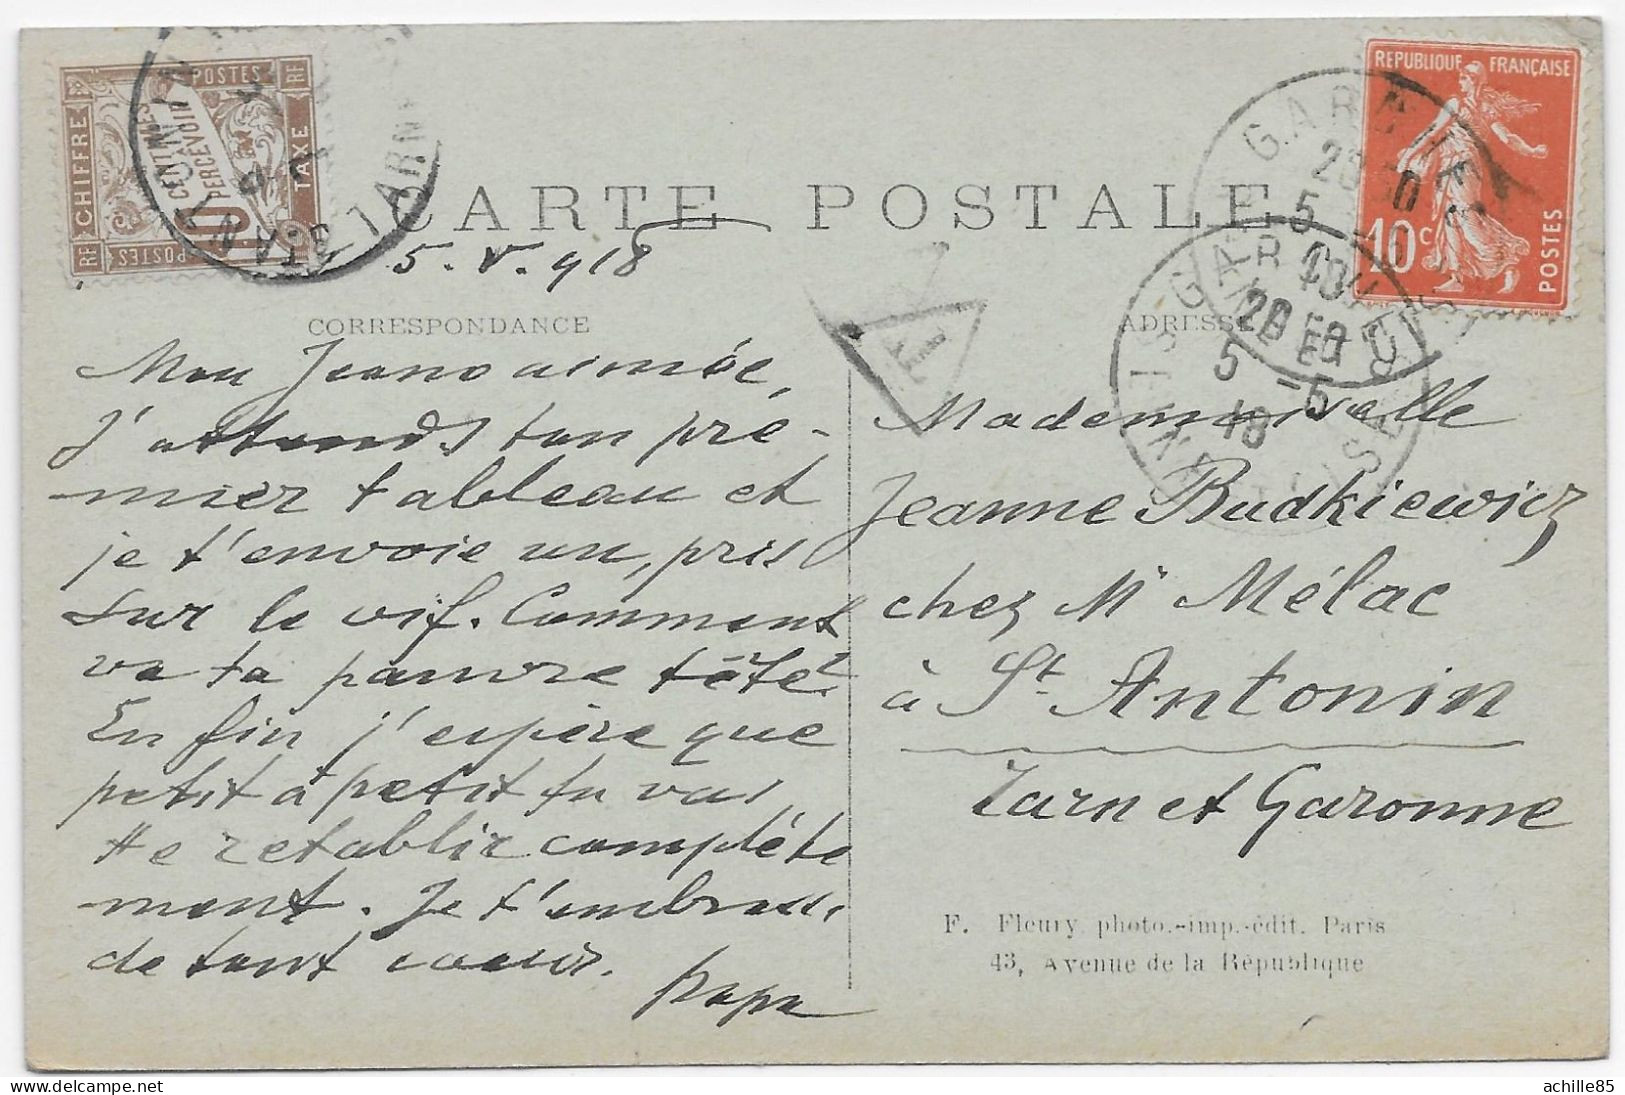 CHIFFRE TAXE
POSTES
CENTIMES
À PERCEVOIR
10
RF
RF
RF
POSTES
ST ANTONIN
TARN
RÉPUBLIQUE FRANÇAISE
10c
POSTES
CARTE POSTALE
5. V. 918
CORRESPONDANCE
ADRESSE
T
Mon Jeanno aimée,
J'attends ton pre-
mier tableau et
je t'envoie un, pris
sur le vif. Comment
va ta pauvre tête?
Enfin j'espère que
petit à petit tu vas
te retablir complète
ment. Je t'embrasse
de tout coeur.
papa
Mademoiselle
Jeanne Budkiewicz
chez Mr Mélac
à St. Antonin
Tarn et Garonne
F. Fleury photo.-imp.-édit. Paris
43, Avenue de la République
achille85